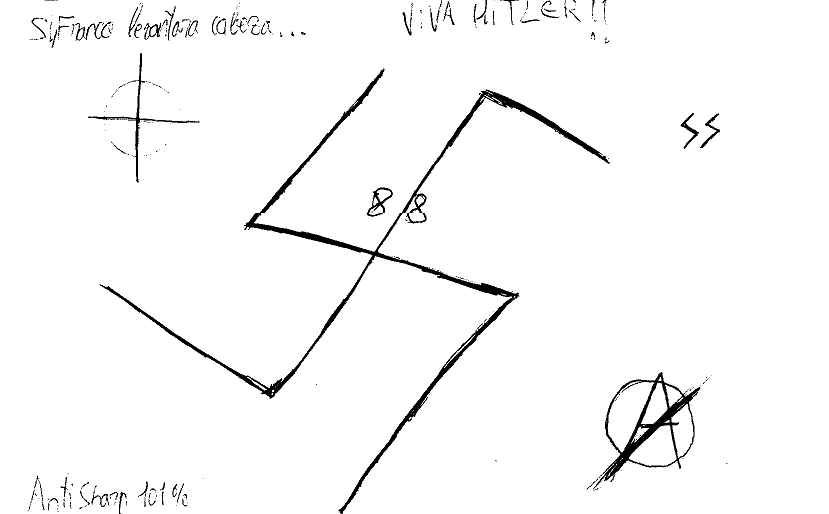 Si Franco levantara cabeza...
VIVA HITLER!!
SS
88
A
AntiSharp 101%